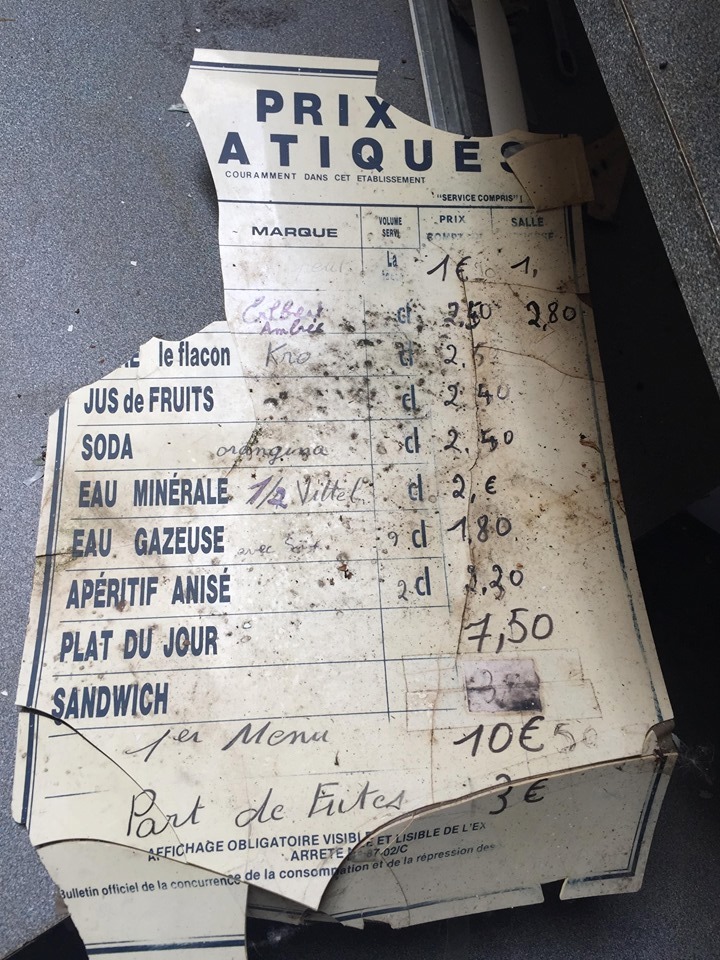 PRIX
ATIQUÉS
COURAMMENT DANS CET ETABLISSEMENT
"SERVICE COMPRIS"
MARQUE VOLUME SERVI PRIX SALLE
La 1€ 1,
Ambrée cl 2,50 2,80
le flacon Kro cl 2,5
JUS de FRUITS cl 2 40
SODA orangina cl 2,50
EAU MINÉRALE 1/2 Vittel cl 2,€
EAU GAZEUSE avec cl 180
APÉRITIF ANISÉ 2 cl 2,20
PLAT DU JOUR 7,50
SANDWICH 3
1er Menu 10€50
Part de Frites 3€
AFFICHAGE OBLIGATOIRE VISIBLE ET LISIBLE DE L'EX
ARRETE N° 87-02/C
Bulletin officiel de la concurrence de la consommation et de la répression des